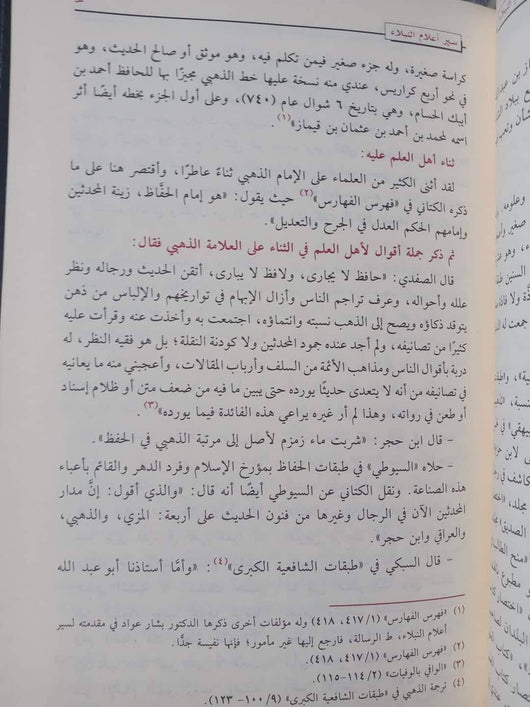 سير أعلام النبلاء
كراسة صغيرة، وله جزء صغير فيمن تكلم فيه، وهو موثق أو صالح الحديث، وهو
في نحو أربع كراريس، عندي منه نسخة عليها خط الذهبي مجيزًا بها للحافظ أحمد بن
أيبك الحسام، وهي بتاريخ ٦ شوال عام (٧٤٠)، وعلى أول الجزء بخطه أيضًا أثر
اسمه لمحمد بن أحمد بن عثمان بن قيماز»(١).
ثناء أهل العلم عليه:
لقد أثنى الكثير من العلماء على الإمام الذهبي ثناءً عاطرًا، وأقتصر هنا على ما
ذكره الكتاني في «فهرس الفهارس»(٢) حيث يقول: «هو إمام الحفَّاظ، زينة المحدثين
وإمامهم الحكم العدل في الجرح والتعديل».
ثم ذكر جملة أقوال لأهل العلم في الثناء على العلامة الذهبي فقال:
قال الصفدي: «حافظ لا يجارى، ولافظ لا يبارى، أتقن الحديث ورجاله ونظر
علله وأحواله، وعرف تراجم الناس وأزال الإبهام في تواريخهم والإلباس من ذهن
يتوقد ذكاؤه ويصح إلى الذهب نسبته وانتماؤه، اجتمعت به وأخذت عنه وقرأت عليه
كثيرًا من تصانيفه، ولم أجد عنده جمود المحدثين ولا كودنة النقلة؛ بل هو فقيه النظر، له
دربة بأقوال الناس ومذاهب الأئمة من السلف وأرباب المقالات، وأعجبني منه ما يعانيه
في تصانيفه من أنه لا يتعدى حديثًا يورده حتى يبين ما فيه من ضعف متن أو ظلام إسناد
أو طعن في رواته، وهذا لم أر غيره يراعي هذه الفائدة فيما يورده»(٣).
– قال ابن حجر: «شربت ماء زمزم لأصل إلى مرتبة الذهبي في الحفظ».
– حلاه «السيوطي» في طبقات الحفاظ بمؤرخ الإسلام وفرد الدهر والقائم بأعباء
هذه الصناعة. ونقل الكتاني عن السيوطي أيضًا أنه قال: «والذي أقول: إنَّ مدار
المحدثين الآن في الرجال وغيرها من فنون الحديث على أربعة: المزي، والذهبي،
والعراقي وابن حجر».
– قال السبكي في «طبقات الشافعية الكبرى»(٤): «وأمَّا أستاذنا أبو عبد الله
(١) «فهرس الفهارس» (٤١٧/١، ٤١٨) وله مؤلفات أخرى ذكرها الدكتور بشار عواد في مقدمته لسير
أعلام النبلاء، ط الرسالة، فارجع إليها غير مأمور؛ فإنها نفيسة جدًّا.
(٢) «فهرس الفهارس» (٤١٧/١، ٤١٨).
(٣) «الوافي بالوفيات» (١١٤/٢-١١٥).
(٤) ترجمة الذهبي في «طبقات الشافعية الكبرى» (١٠٠/٩-١٢٣).